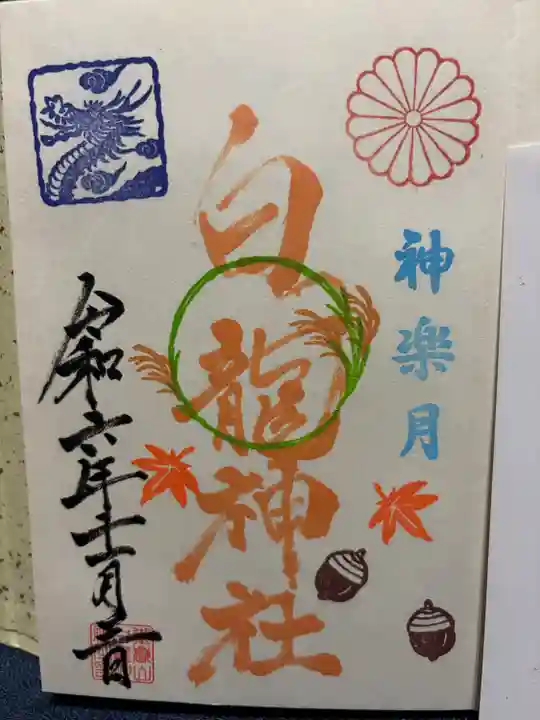 神楽月
白龍神社
令和六年十一月一日